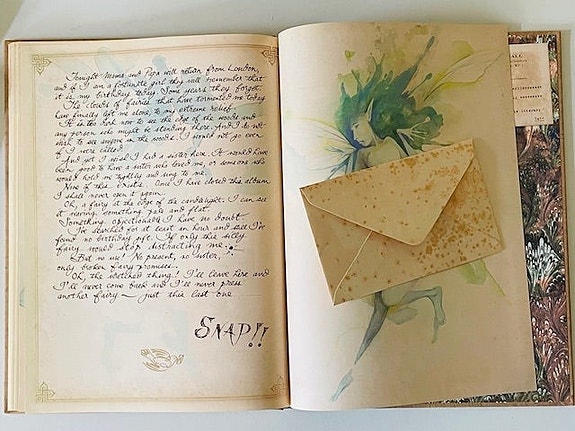 Tonight Mama and Papa will return from London,
and if I am a fortunate girl they will remember that
it is my birthday today. Some years they forget.
The clouds of fairies that have tormented me today
have finally left me alone, to my extreme relief.
It is too dark now to see the edge of the woods and
any person who might be standing there. And I do not
wish to see anyone in the woods. I would not go even
if I were called.
And yet I wish I had a sister here. It would have
been good to have a sister who loved me, or someone who
would hold me tightly and sing to me.
None of this exists. Once I have closed this album
I shall never open it again.
Oh, a fairy at the edge of the candlelight. I can see
it waving something pale and flat.
Something objectionable I have no doubt.
I've searched for at least an hour and still I've
found no birthday gift. If only this silly
fairy would stop distracting me...
But no use! No present, no sister,
only broken fairy promises.
Oh, the wretched thing! I'll leave here and
I'll never come back and I'll never press
another fairy — just this last one
SNAP!!